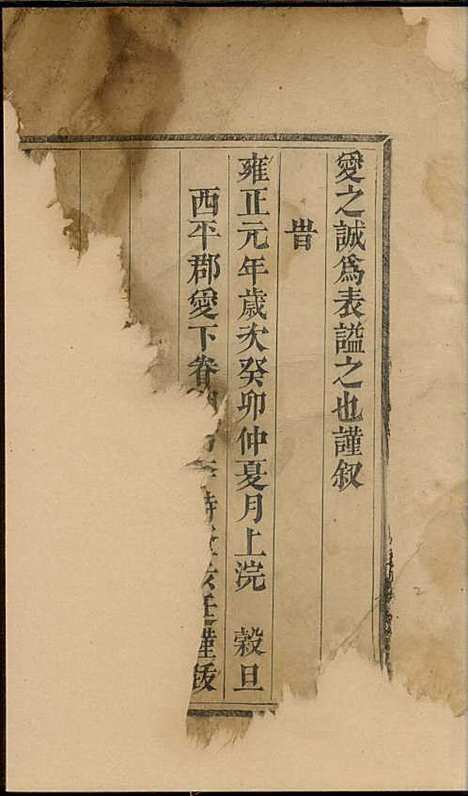 愛之誠爲表謚之也謹叙
昔
雍正元年歲次癸卯仲夏月上浣 穀旦
西平郡愛下眷 謹跋